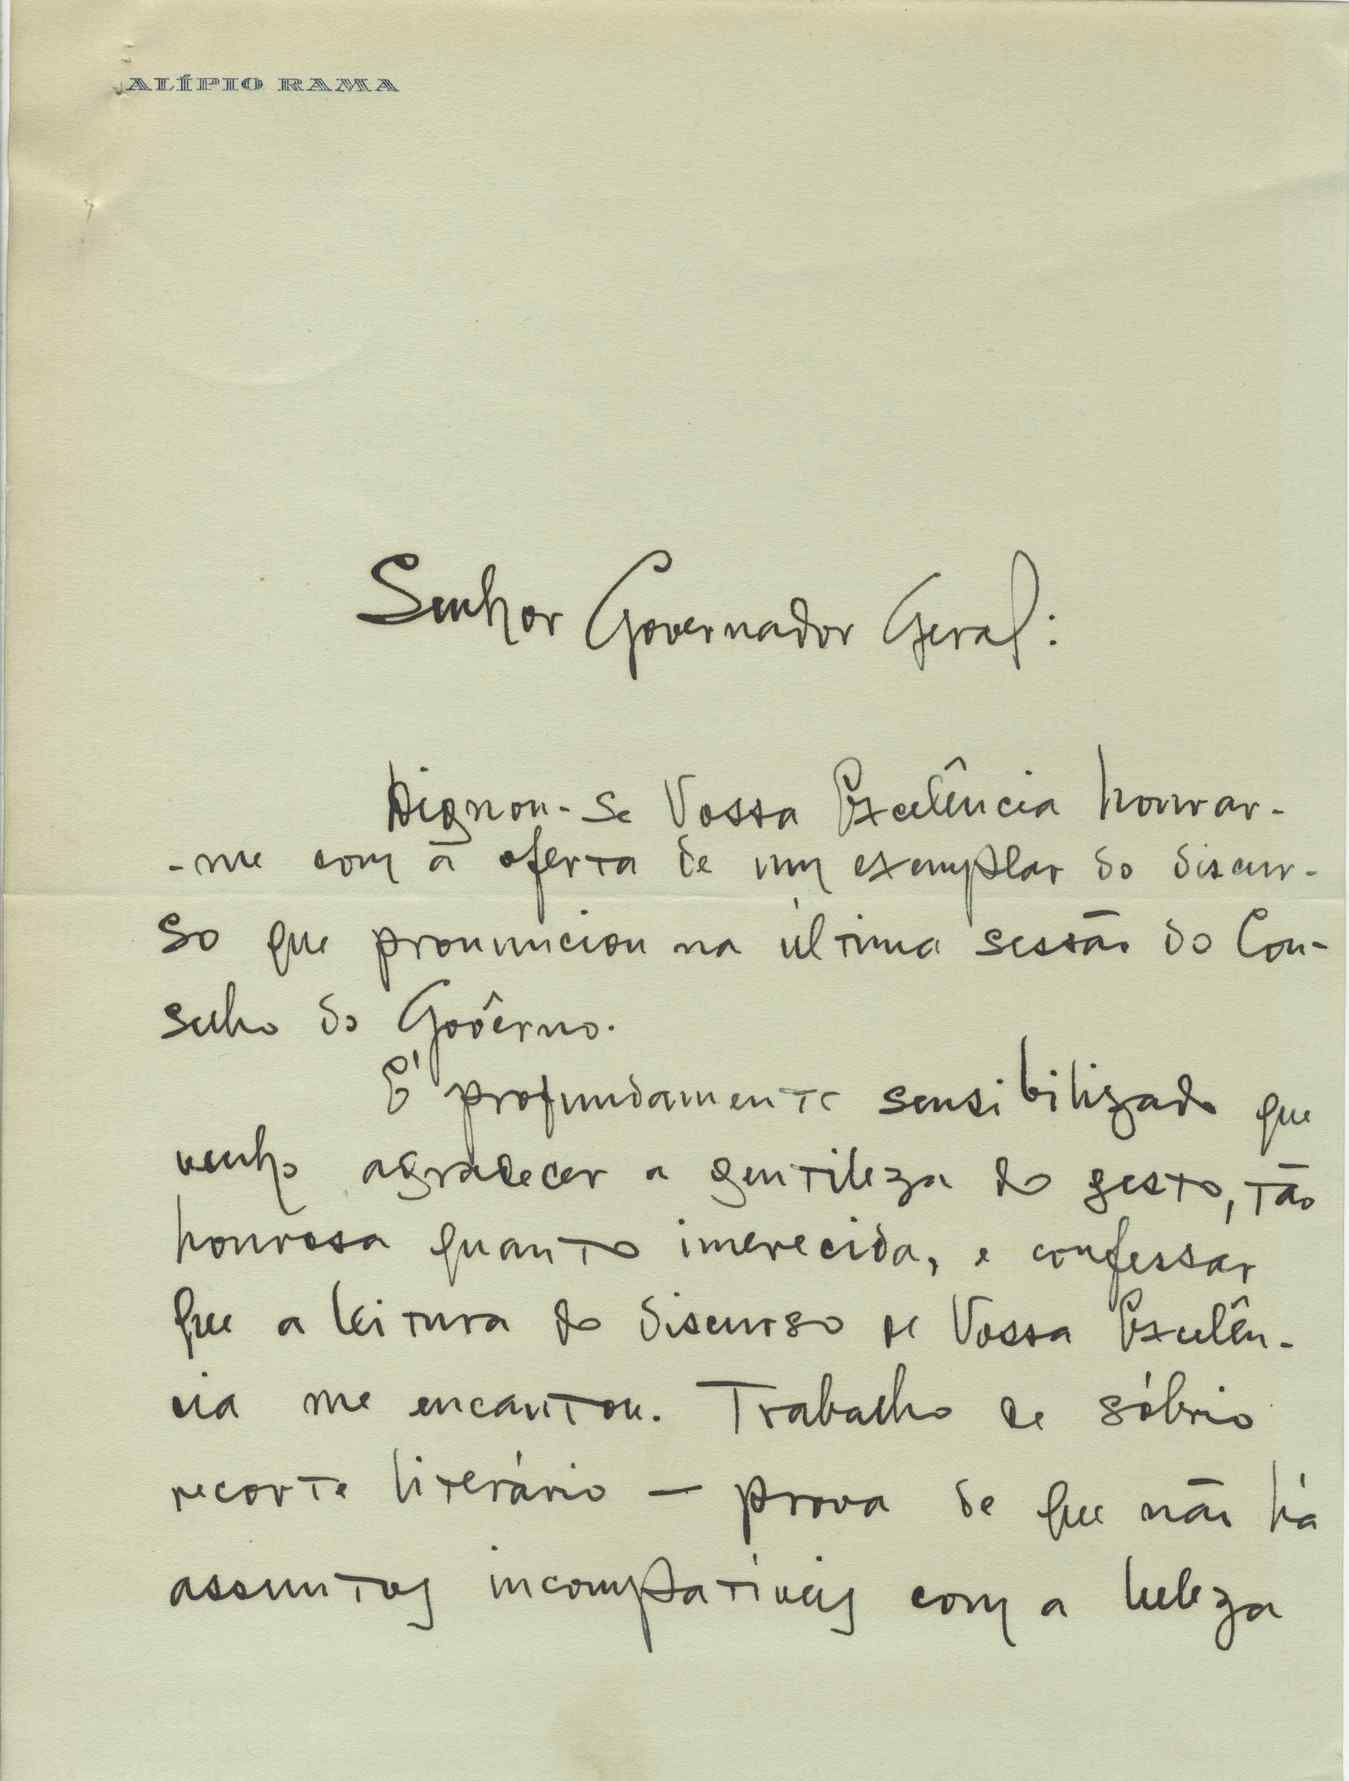 ALÍPIO RAMA
Senhor Governador Geral:
Dignou-se Vossa Excelência honrar-
-me com a oferta de um exemplar do discur-
so que pronunciou na última sessão do Con-
selho do Govêrno.
É profundamente sensibilizado que
venho agradecer a gentileza do gesto, tão
honrosa quanto imerecida, e confessar
que a leitura do discurso de Vossa Excelên-
cia me encantou. Trabalho de sóbrio
recorte literário — prova de que não há
assuntos incompatíveis com a beleza